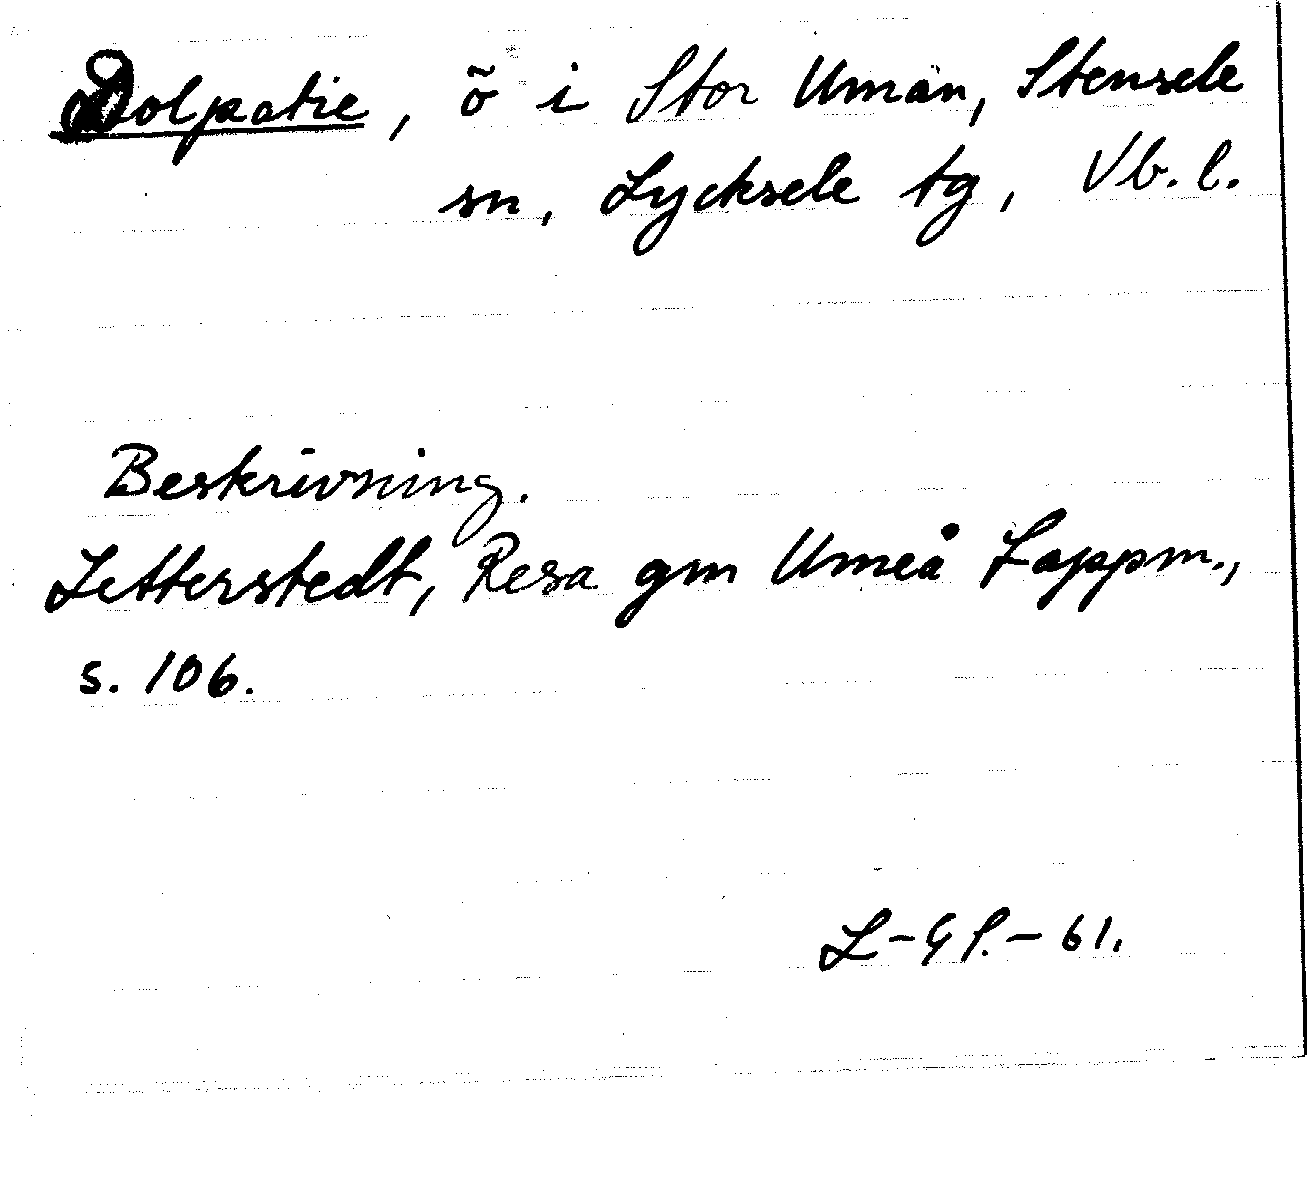 Dolpatie, ö i Stor Umän, Stensele
sn, Lycksele tg, Vb. l.
Beskrivning.
Zetterstedt, Resa gm Umeå Lappm.,
s. 106.
L-G P. - 61.